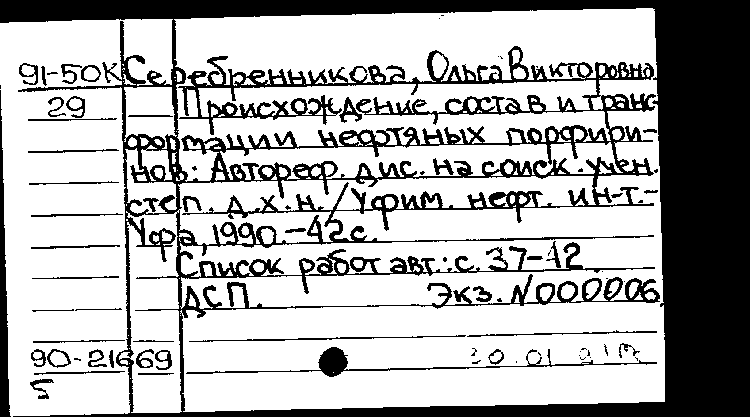 91-50К Серебренникова, Ольга Викторовна
29 Происхождение, состав и транс-
формации нефтяных порфири-
нов: Автореф. дис. на соиск. учен.
степ. д.х.н. / Уфим. нефт. ин-т.-
Уфа, 1990.-42с.
Список работ авт.: с. 37-42.
ДСП. Экз. N000006.
90-21669
5